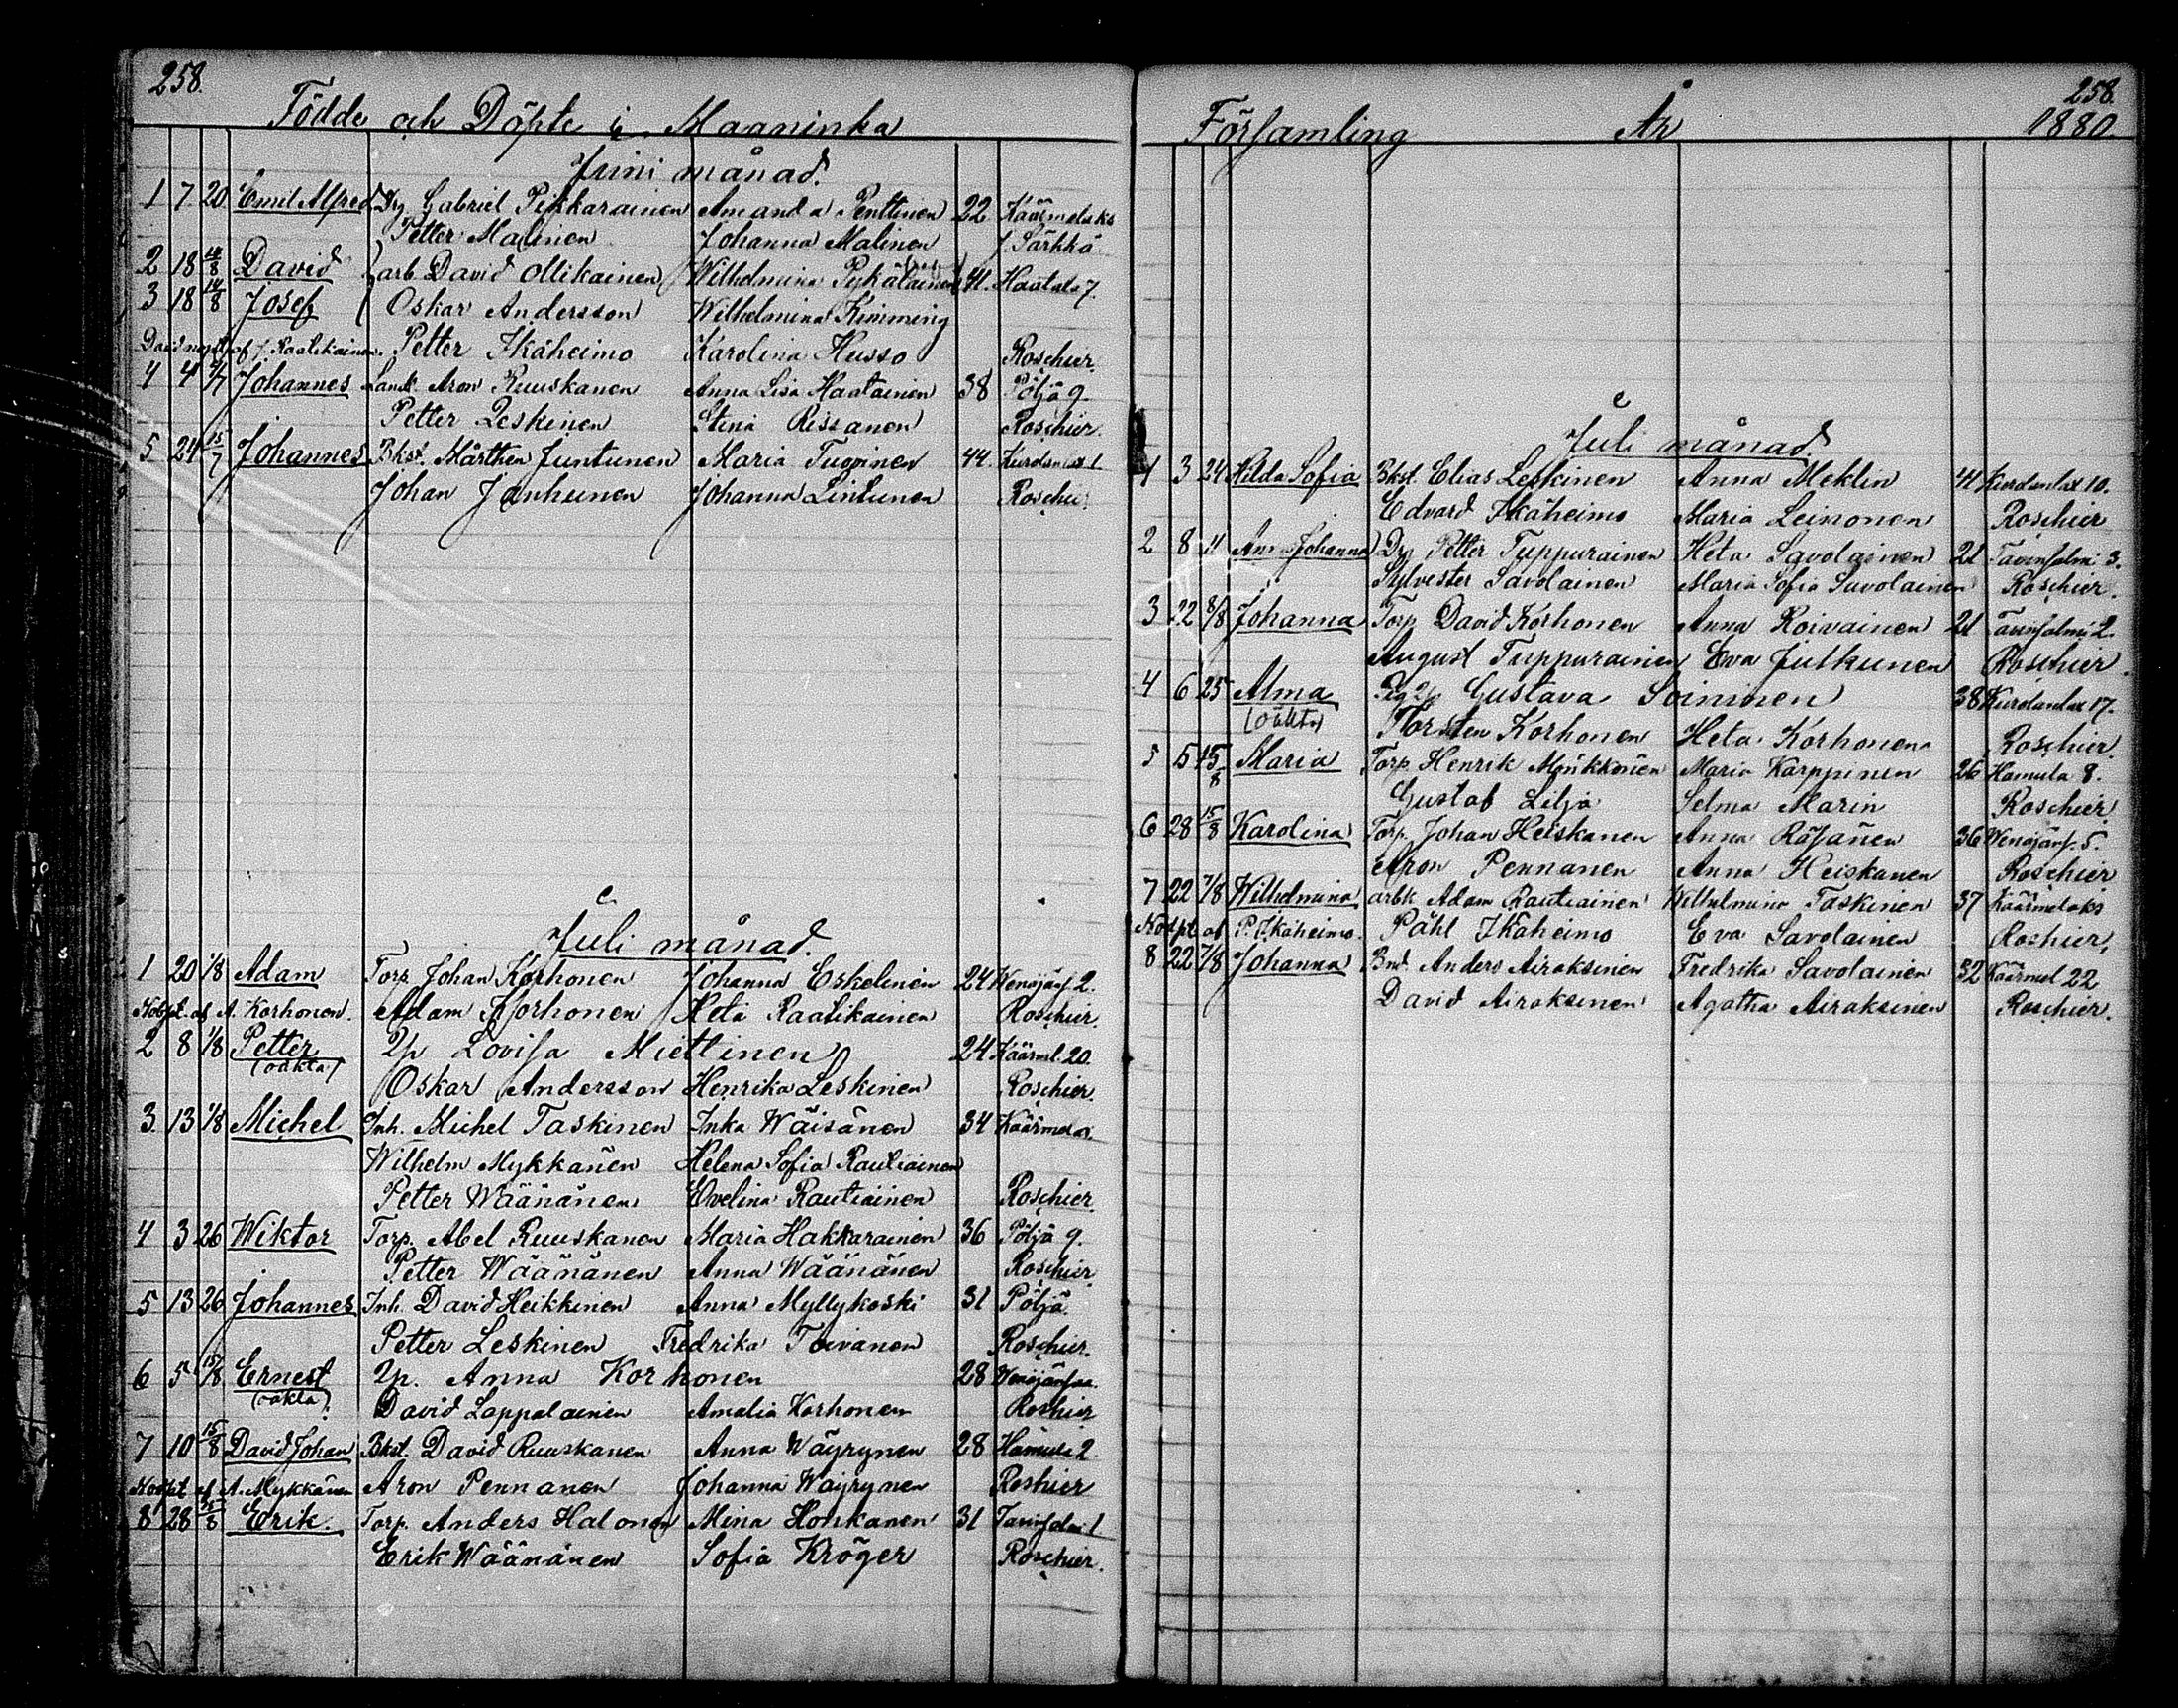 258.
Födde och Döpte i Maaninka
Juni månad.
1 7 20 Emil Alfred Dg Gabriel Pikkarainen Amanda Penttinen 22 Käärmelaks
Petter Malinen Johanna Malinen J. Särkkä
2 18 14/8 David arb David Ollikainen Wilhelmina Pykäläinen 41. Haatala 7.
3 18 14/8 Josef Oskar Andersson Wilhelmina Kimming
David nöpt af J. Raatikainen. Petter Ikäheimo Karolina Husso Roschier.
4 4 4/7 Johannes Landb. Aron Ruuskanen Anna Lisa Haatainen 38 Pöljä 9.
Petter Leskinen Stina Rissanen Roschier.
5 24 15/7 Johannes Bkst. Mårthen Juntunen Maria Tuppinen 44. Kurdanlax 1
Johan Janhunen Johanna Lintunen Roschier
Juli månad.
1 20 1/8 Adam Torp. Johan Korhonen Johanna Eskelinen 24 Wenäjänf 2.
Nödpt. af A. Korhonen. Adam Korhonen Heta Raatikainen Roschier.
2 8 1/8 Petter 2/p Lovisa Miettinen 24 Käärml. 20.
(oäkta) Oskar Andersson Henrika Leskinen Roschier.
3. 13 1/8 Michel Inh. Michel Taskinen Inka Wäisänen 34 Käärmela.
Wilhelm Mykkänen Helena Sofia Rautiainen
Petter Wäänänen Evelina Rautiainen Roschier.
4 3 26 Wiktor Torp. Abel Ruuskanen Maria Hakkarainen 36 Pöljä 9.
Petter Wäänänen Anna Wäänänen Roschier.
5 13 26 Johannes Inh. David Heikkinen Anna Myllykoski 31 Pöljä.
Petter Leskinen Fredrika Toivanen Roschier.
6 5 15/8 Ernest 2/p. Anna Korhonen 28 Wenäjänsaa.
(oäkta). David Lappalainen Amalia Korhonen Roshier
7 10 15/8 David Johan Bkst. David Ruuskanen Anna Wäyrynen 28 Hamula 2.
Nödpt af A. Mykkänen Aron Pennanen Johanna Wäyrynen Roshier
8 28 15/8 Erik. Torp. Anders Halonen Mina Honkanen 31 Tavinsalmi 1
Erik Wäänänen Sofia Kröger Roschier.
258.
Församling År 1880.
Juli månad.
1 3 24 Hilda Sofia Bkst. Elias Leskinen Anna Meklin 41 Kurdanlax 10.
Edvard Ikäheimo Maria Leinonen Roschier
2 8 11 Anna Johanna Dg Petter Tuppurainen Heta Savolainen 21 Tavinsalmi 3.
Sylvester Savolainen Maria Sofia Savolainen Roschier.
3 22 8/8 Johanna Torp David Korhonen Anna Roivainen 21 Tavinsalmi 2.
August Tuppurainen Eva Jutkunen Roschier.
4 6 25 Alma Pig 2/p Gustava Soininen 38 Kurdanlax 17.
(oäkta) Torsten Korhonen Heta Korhonen Roschier.
5 5 15/8 Maria Torp. Henrik Mönkkönen Maria Karppinen 26 Hamula 8.
Gustaf Lilja Selma Marin Roschier
6 28 15/8 Karolina Torp. Johan Heiskanen Anna Räsänen 36 Wenäjänf. 5.
Aron Pennanen Anna Heiskanen Roschier
7 22 7/8 Wilhelmina arbk Adam Rautiainen Wilhelmina Taskinen 37 Käärmelaks
Nödpt af P. Ikäheimo. Påhl Ikäheimo Eva Savolainen Roshier,
8 22 7/8 Johanna Bnd. Anders Airaksinen Fredrika Savolainen 32 Käärmel 22
David Airaksinen Agatha Airaksinen Roschier.